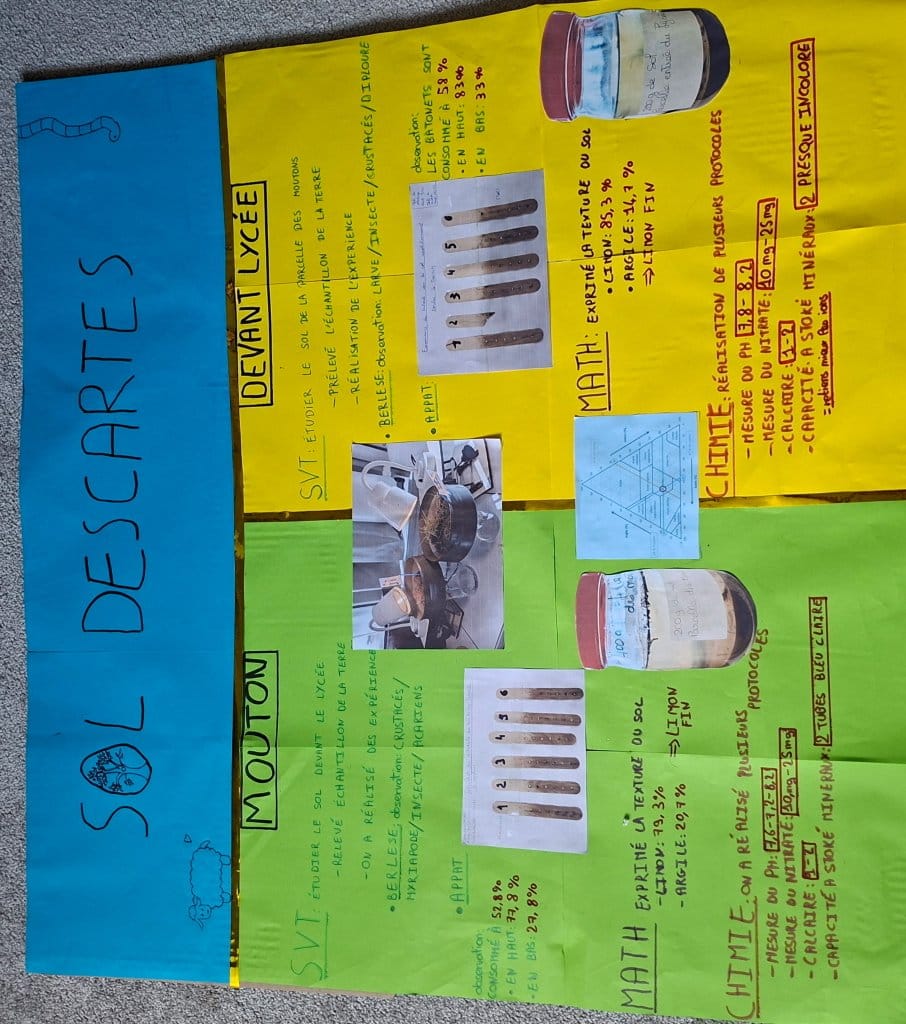 SOL DESCARTES
MOUTON
SVT: ÉTUDIER LE SOL DEVANT LE LYCÉE
- RELEVÉ ÉCHANTILLON DE LA TERRE
- ON A RÉALISÉ DES EXPÉRIENCE
• BERLESE: observation: CRUSTACÉS/
MYRIAPODE/INSECTE/ACARIENS
• APPAT
observation:
CONSOMMÉ À 52,8%
• EN HAUT: 77,8 %
• EN BAS: 27,8%
1 2 3 4 5 6
MATH EXPRIMÉ LA TEXTURE DU SOL
- LIMON: 79,3%
- ARGILE: 20,7 %
⇒ LIMON
FIN
200g de
Parcelle
CHIMIE: ON A RÉALISÉ PLUSIEURS
PROTOCOLES
- MESURE DU PH: 7,6-7,2-8,2
- MESURE DU NITRATE: 10mg-25mg
- CALCAIRE: 1-2
- CAPACITÉ A STOKÉ MINERAUX: 2 TUBES BLEU CLAIRE
DEVANT LYCÉE
SVT: ÉTUDIER LE SOL DE LA PARCELLE DES MOUTONS
- PRÉLEVÉ L'ÉCHANTILLON DE LA TERRE
- RÉALISATION DE L'EXPERIENCE
• BERLESE: observation: LARVE/INSECTE/CRUSTACÉS/DIPLOURE
• APPAT:
observation:
LES BATONETS SONT
CONSOMMÉ À 58 %
• EN HAUT: 83%
• EN BAS: 33%
2 3 4 5
MATH: EXPRIMÉ LA TEXTURE DU SOL
• LIMON: 85,3 %
• ARGILE: 14,7 %
⇒ LIMON FIN
200g de Sol
CHIMIE: RÉALISATION DE PLUSIEURS PROTOCOLES
- MESURE DU PH 7,8-8,2
- MESURE DU NITRATE: 10mg-25mg
- CALCAIRE: 1-2
- CAPACITÉ A STOKÉ MINÉRAUX: 2 PRESQUE INCOLORE